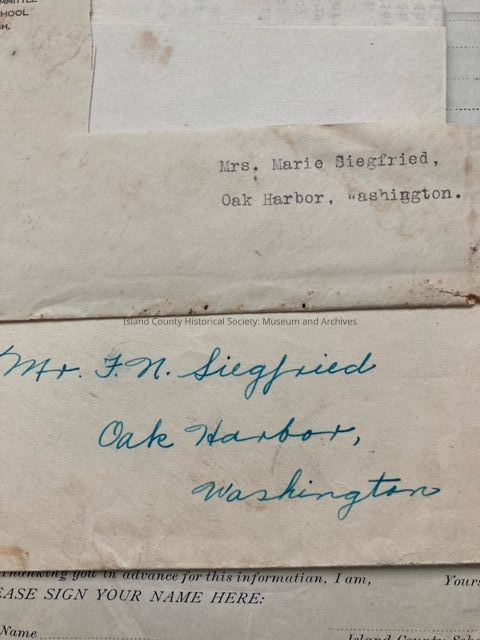 MMITTEE
HOOL
SH.
Mrs. Marie Siegfried,
Oak Harbor, Washington.
Island County Historical Society: Museum and Archives
Mr. F. N. Siegfried
Oak Harbor,
Washington
Thanking you in advance for this information, I am, Yours
EASE SIGN YOUR NAME HERE:
Name
Island County Scho